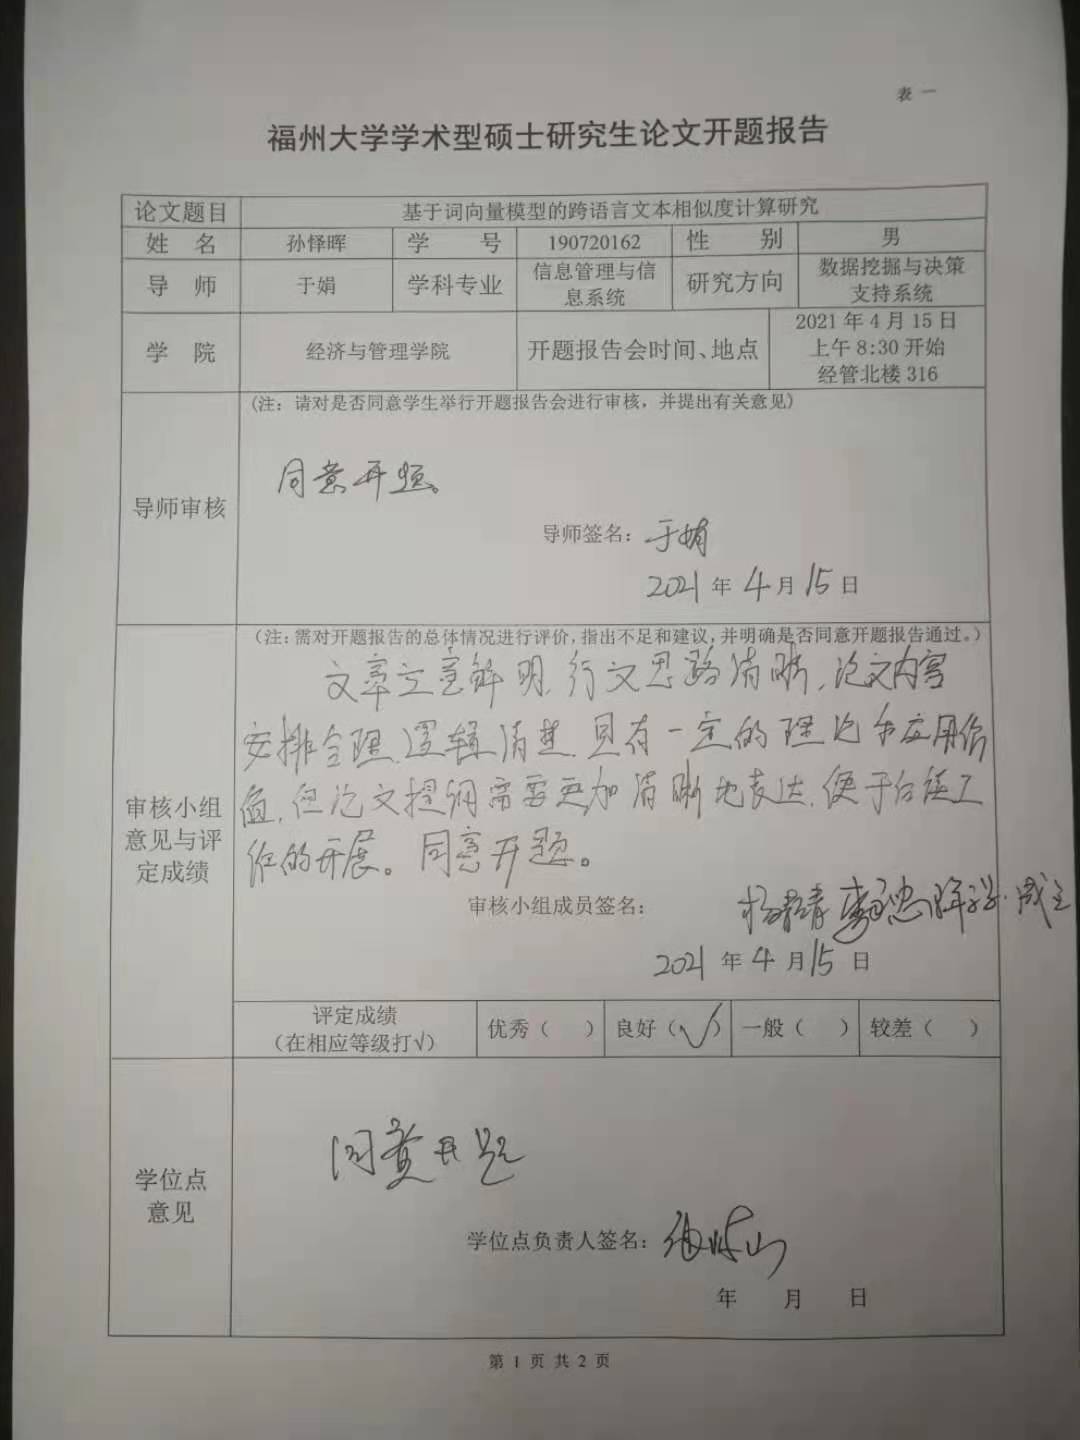 表 一
福州大学学术型硕士研究生论文开题报告
论文题目 基于词向量模型的跨语言文本相似度计算研究
姓 名 孙怿晖 学 号 190720162 性 别 男
导 师 于娟 学科专业 信息管理与信息系统 研究方向 数据挖掘与决策支持系统
学 院 经济与管理学院 开题报告会时间、地点 2021年4月15日
上午8:30开始
经管北楼316
导师审核
(注：请对是否同意学生举行开题报告会进行审核，并提出有关意见)
同意开题。
导师签名：于娟
2021年4月15日
审核小组意见与评定成绩
（注：需对开题报告的总体情况进行评价，指出不足和建议，并明确是否同意开题报告通过。）
文章立意鲜明，行文思路清晰，论文内容
安排合理，逻辑清楚，具有一定的理论和应用价
值，但论文提纲需要更加清晰地表达，便于后续工
作的开展。同意开题。
审核小组成员签名：
2021年4月15日
评定成绩
（在相应等级打√） 优秀（ ） 良好（√） 一般（ ） 较差（ ）
学位点
意见
同意开题
学位点负责人签名：
年 月 日
第 1 页 共 2 页